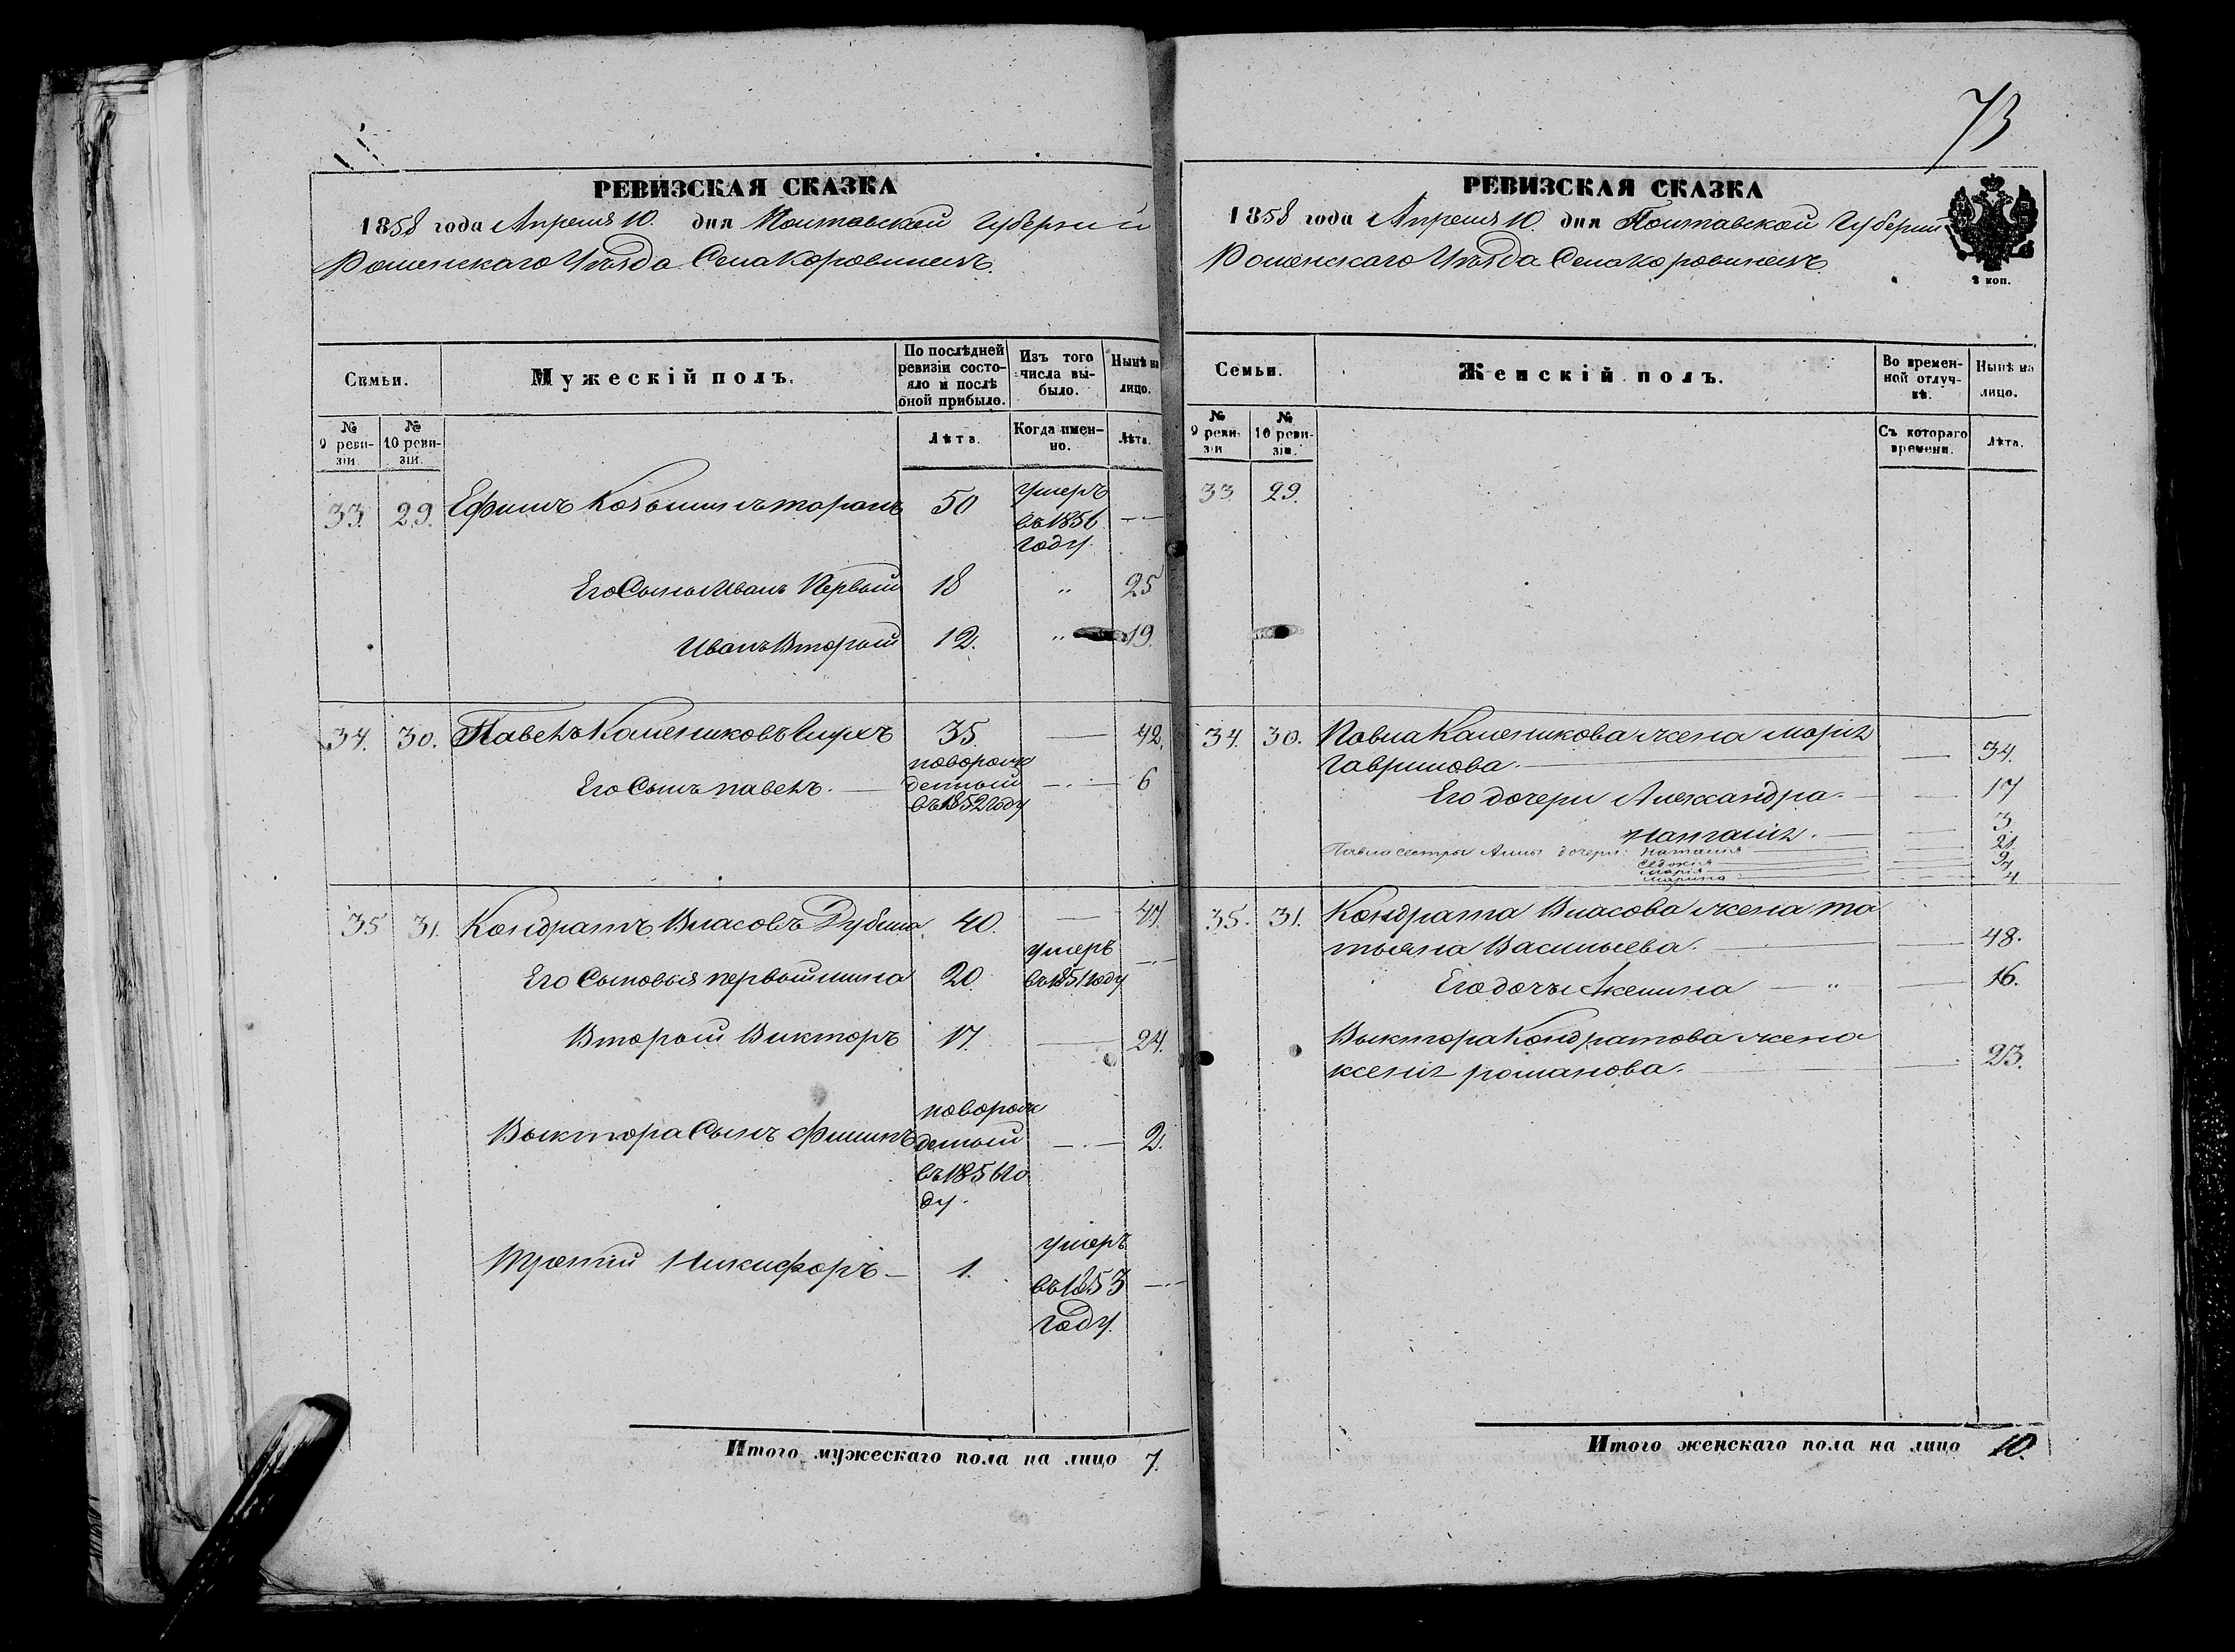 РЕВИЗСКАЯ СКАЗКА
1858 года Апреля 10. дня Полтавской Губерний
Роменскаго Уѣзда Села Коровинецъ.
Семьи.
Мужескій полъ.
По послѣдней ревизіи состояло и послѣ оной прибыло.
Изъ того числа выбыло.
Нынѣ на лицо.
№ 9 ревизіи
№ 10 ревизіи.
Лѣта.
Когда именно.
Лѣта.
33. 29. Ефимъ 50 умеръ
въ 1856
году.
Его Сынъ Иванъ Первый 18 " 25
Иванъ Второй 12. " 19.
34. 30. Павелъ Калениковъ 35. — 42.
Его Сынъ павелъ. — новорож
денный — 6
въ 1852 году
35 31. Кондратъ Власовъ Дубина 40. — 47.
Его Сыновья первый 20. умеръ
въ 1851 году —
Второй Викторъ 17. — 24.
Выктора Сынъ Филипъ новорож
денный — 2.
въ 1856 го
ду.
Третий Никифоръ — 1. умеръ
въ 1853 —
году.
Итого мужескаго пола на лицо 7.
73
РЕВИЗСКАЯ СКАЗКА
1858 года Апреля 10. дня Полтавской Губерний
Роменскаго Уѣзда Села Коровинецъ.
коп.
Семьи.
Женскій полъ.
Во временной отлучкѣ.
Нынѣ на лицо.
№ 9 ревизіи
№ 10 ревизіи.
Съ котораго времени.
Лѣта.
33. 29.
34. 30. Павла Каленикова жена Марія
Гаврилова. — — 34.
Его дочери Александра. — — 17
Наталія. — — 3.
Павла сестры Анны дочери: Наталія — 21.
Евдокія — 9
Марія — 7
Марина — 4
35. 31. Кондрата Власова жена Та
тьяна Васильева. — — 48.
Его дочь Акелина — " — 16.
Выктора Кондратова жена
ксенія романова. — — 23.
Итого женскаго пола на лицо 10.